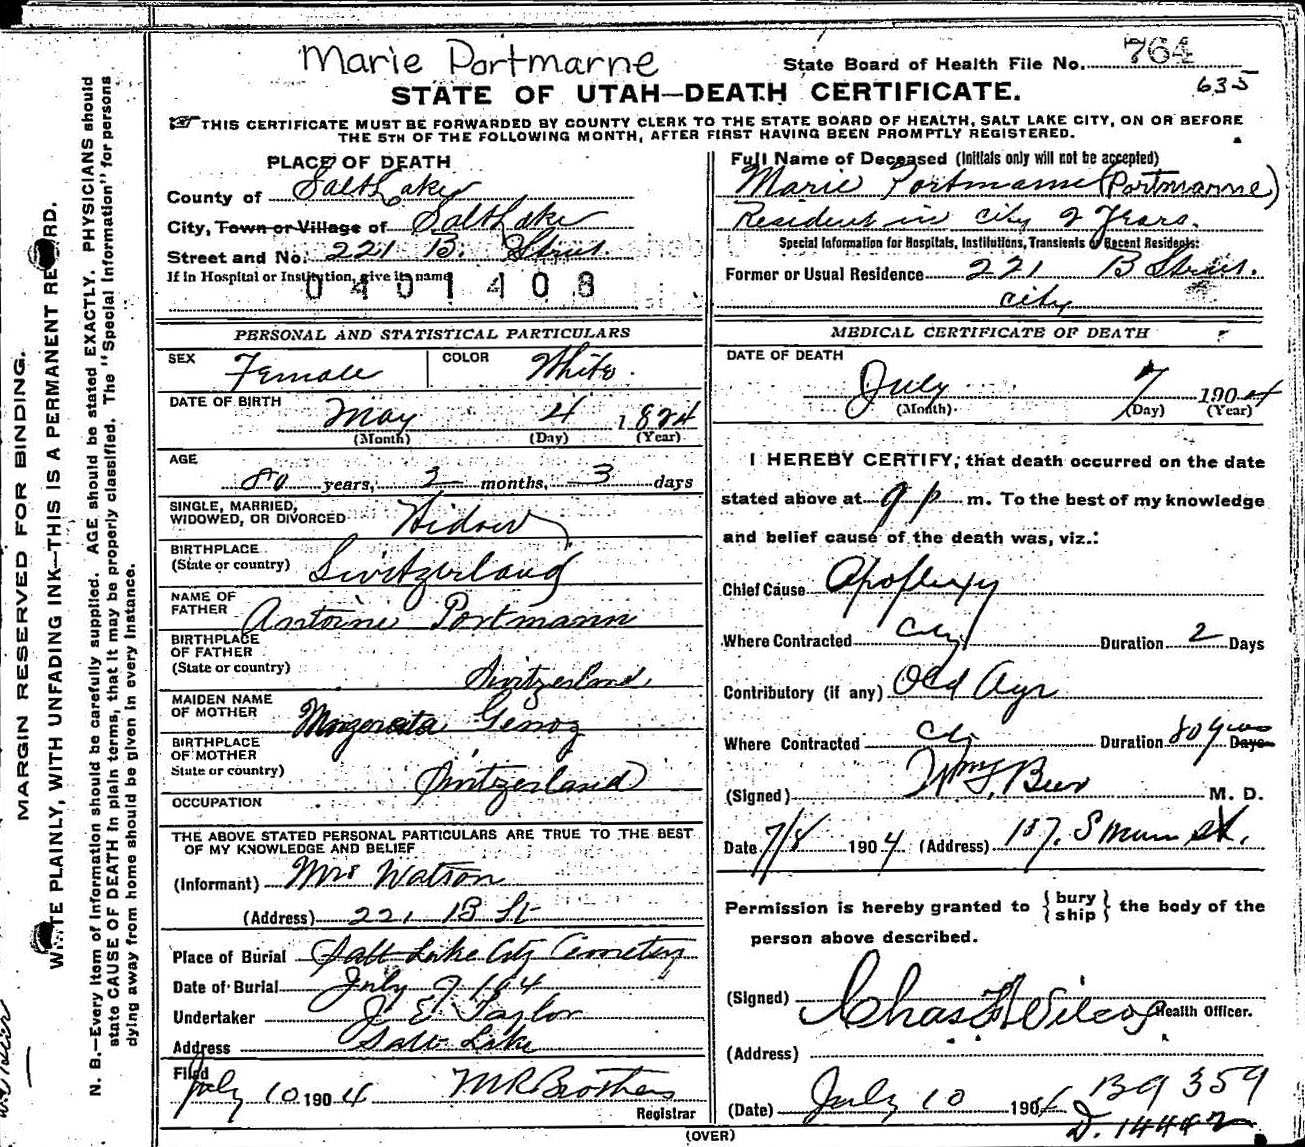 Marie Portmanne
State Board of Health File No. 764
635
STATE OF UTAH—DEATH CERTIFICATE.
THIS CERTIFICATE MUST BE FORWARDED BY COUNTY CLERK TO THE STATE BOARD OF HEALTH, SALT LAKE CITY, ON OR BEFORE
THE 5TH OF THE FOLLOWING MONTH, AFTER FIRST HAVING BEEN PROMPTLY REGISTERED.
PLACE OF DEATH
County of Salt Lake
City, Town or Village of Salt Lake
Street and No. 221 B. Street.
If in Hospital or Institution, give its name
0401408
Full Name of Deceased (Initials only will not be accepted)
Marie Portmann (Portmanne)
Resident in city 9 Years.
Special Information for Hospitals, Institutions, Transients or Recent Residents:
Former or Usual Residence 221 B Street.
city
PERSONAL AND STATISTICAL PARTICULARS
SEX Female COLOR White.
DATE OF BIRTH May 4 1824
(Month) (Day) (Year)
AGE 80 years, 2 months, 3 days
SINGLE, MARRIED,
WIDOWED, OR DIVORCED Widow
BIRTHPLACE
(State or country) Switzerland
NAME OF
FATHER Antoine Portmann
BIRTHPLACE
OF FATHER
(State or country) Switzerland
MAIDEN NAME
OF MOTHER
BIRTHPLACE
OF MOTHER
State or country) Switzerland
OCCUPATION
THE ABOVE STATED PERSONAL PARTICULARS ARE TRUE TO THE BEST
OF MY KNOWLEDGE AND BELIEF
(Informant) Mrs Watson
(Address) 221 B St
Place of Burial Salt Lake City Cemetery
Date of Burial July 9 104
Undertaker J. E. Taylor
Address Salt Lake
Filed
July 10 1904 M R Brothers
Registrar
MEDICAL CERTIFICATE OF DEATH
DATE OF DEATH
July 7 1904
(Month) (Day) (Year)
I HEREBY CERTIFY, that death occurred on the date
stated above at 9 p m. To the best of my knowledge
and belief cause of the death was, viz.:
Chief Cause Apoplexy
Where Contracted City Duration 2 Days
Contributory (if any) Old Age
Where Contracted City Duration 80 years Days
(Signed) Wm F. Beer M. D.
Date 7/8 1904 (Address) 157. S Main St.
Permission is hereby granted to {bury
ship} the body of the
person above described.
(Signed) Chas F Wilcox Health Officer.
(Address)
(Date) July 10 1904 B9 359
D. 14442
(OVER)
MARGIN RESERVED FOR BINDING.
WRITE PLAINLY, WITH UNFADING INK—THIS IS A PERMANENT RECORD.
N. B.—Every item of information should be carefully supplied. AGE should be stated EXACTLY. PHYSICIANS should
state CAUSE OF DEATH in plain terms, that it may be properly classified. The "Special Information" for persons
dying away from home should be given in every instance.